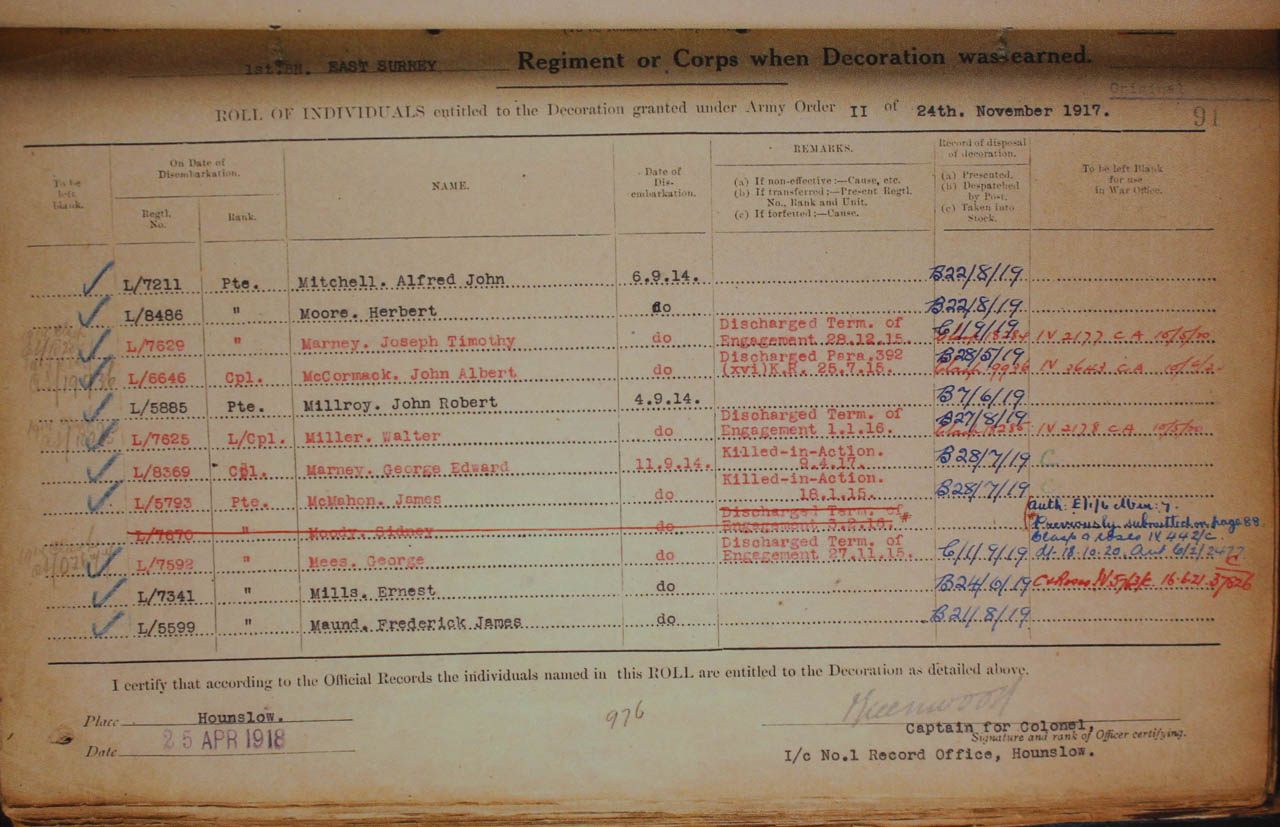 1st.BN. EAST SURREY Regiment or Corps when Decoration was earned.
Original
ROLL OF INDIVIDUALS entitled to the Decoration granted under Army Order II of 24th. November 1917.
91
To be left blank.
On Date of Disembarkation.
Regtl. No.
Rank.
NAME.
Date of Dis-embarkation.
REMARKS.
(a) If non-effective :—Cause, etc.
(b) If transferred :—Present Regtl. No., Rank and Unit.
(c) If forfeited :—Cause.
Record of disposal of decoration.
(a) Presented.
(b) Despatched by Post.
(c) Taken into Stock.
To be left Blank for use in War Office.
L/7211 Pte. Mitchell. Alfred John 6.9.14. B22/8/19
L/8486 " Moore. Herbert do B22/8/19
L/7629 " Marney. Joseph Timothy do Discharged Term. of Engagement 28.12.15. C/1/9/19 IV 2177 CA
L/6646 Cpl. McCormack. John Albert do Discharged Para.392 (xvi)K.R. 25.7.15. B28/5/19 IV 3643 CA
L/5885 Pte. Millroy. John Robert 4.9.14. B7/6/19
L/7625 L/Cpl. Miller. Walter do Discharged Term. of Engagement 1.1.16. B27/8/19 IV 2178 CA
L/8369 Cpl. Marney. George Edward 11.9.14. Killed-in-Action. 9.4.17. B28/7/19 C
L/5793 Pte. McMahon. James do Killed-in-Action. 16.1.15. B28/7/19 C
L/7670 " Moody. Sidney do Discharged Term. of Engagement 3.2.16. # Auth: Previously submitted on page 88
L/7592 " Mees. George do Discharged Term. of Engagement 27.11.15. C/1/9/19 Clasp & roses IV 442/C dt. 18.10.20.
L/7341 " Mills. Ernest do B24/6/19 16.6.21
L/5599 " Maund. Frederick James do B21/8/19
I certify that according to the Official Records the individuals named in this ROLL are entitled to the Decoration as detailed above.
Place Hounslow.
976
Date 25 APR 1918
Captain for Colonel,
Signature and rank of Officer certifying.
I/c No.1 Record Office, Hounslow.